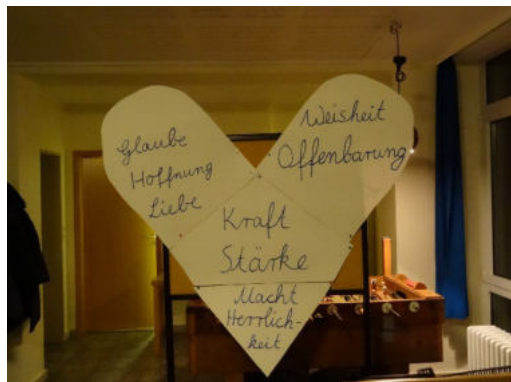 Glaube
Hoffnung
Liebe
Weisheit
Offenbarung
Kraft
Stärke
Macht
Herrlich-
keit